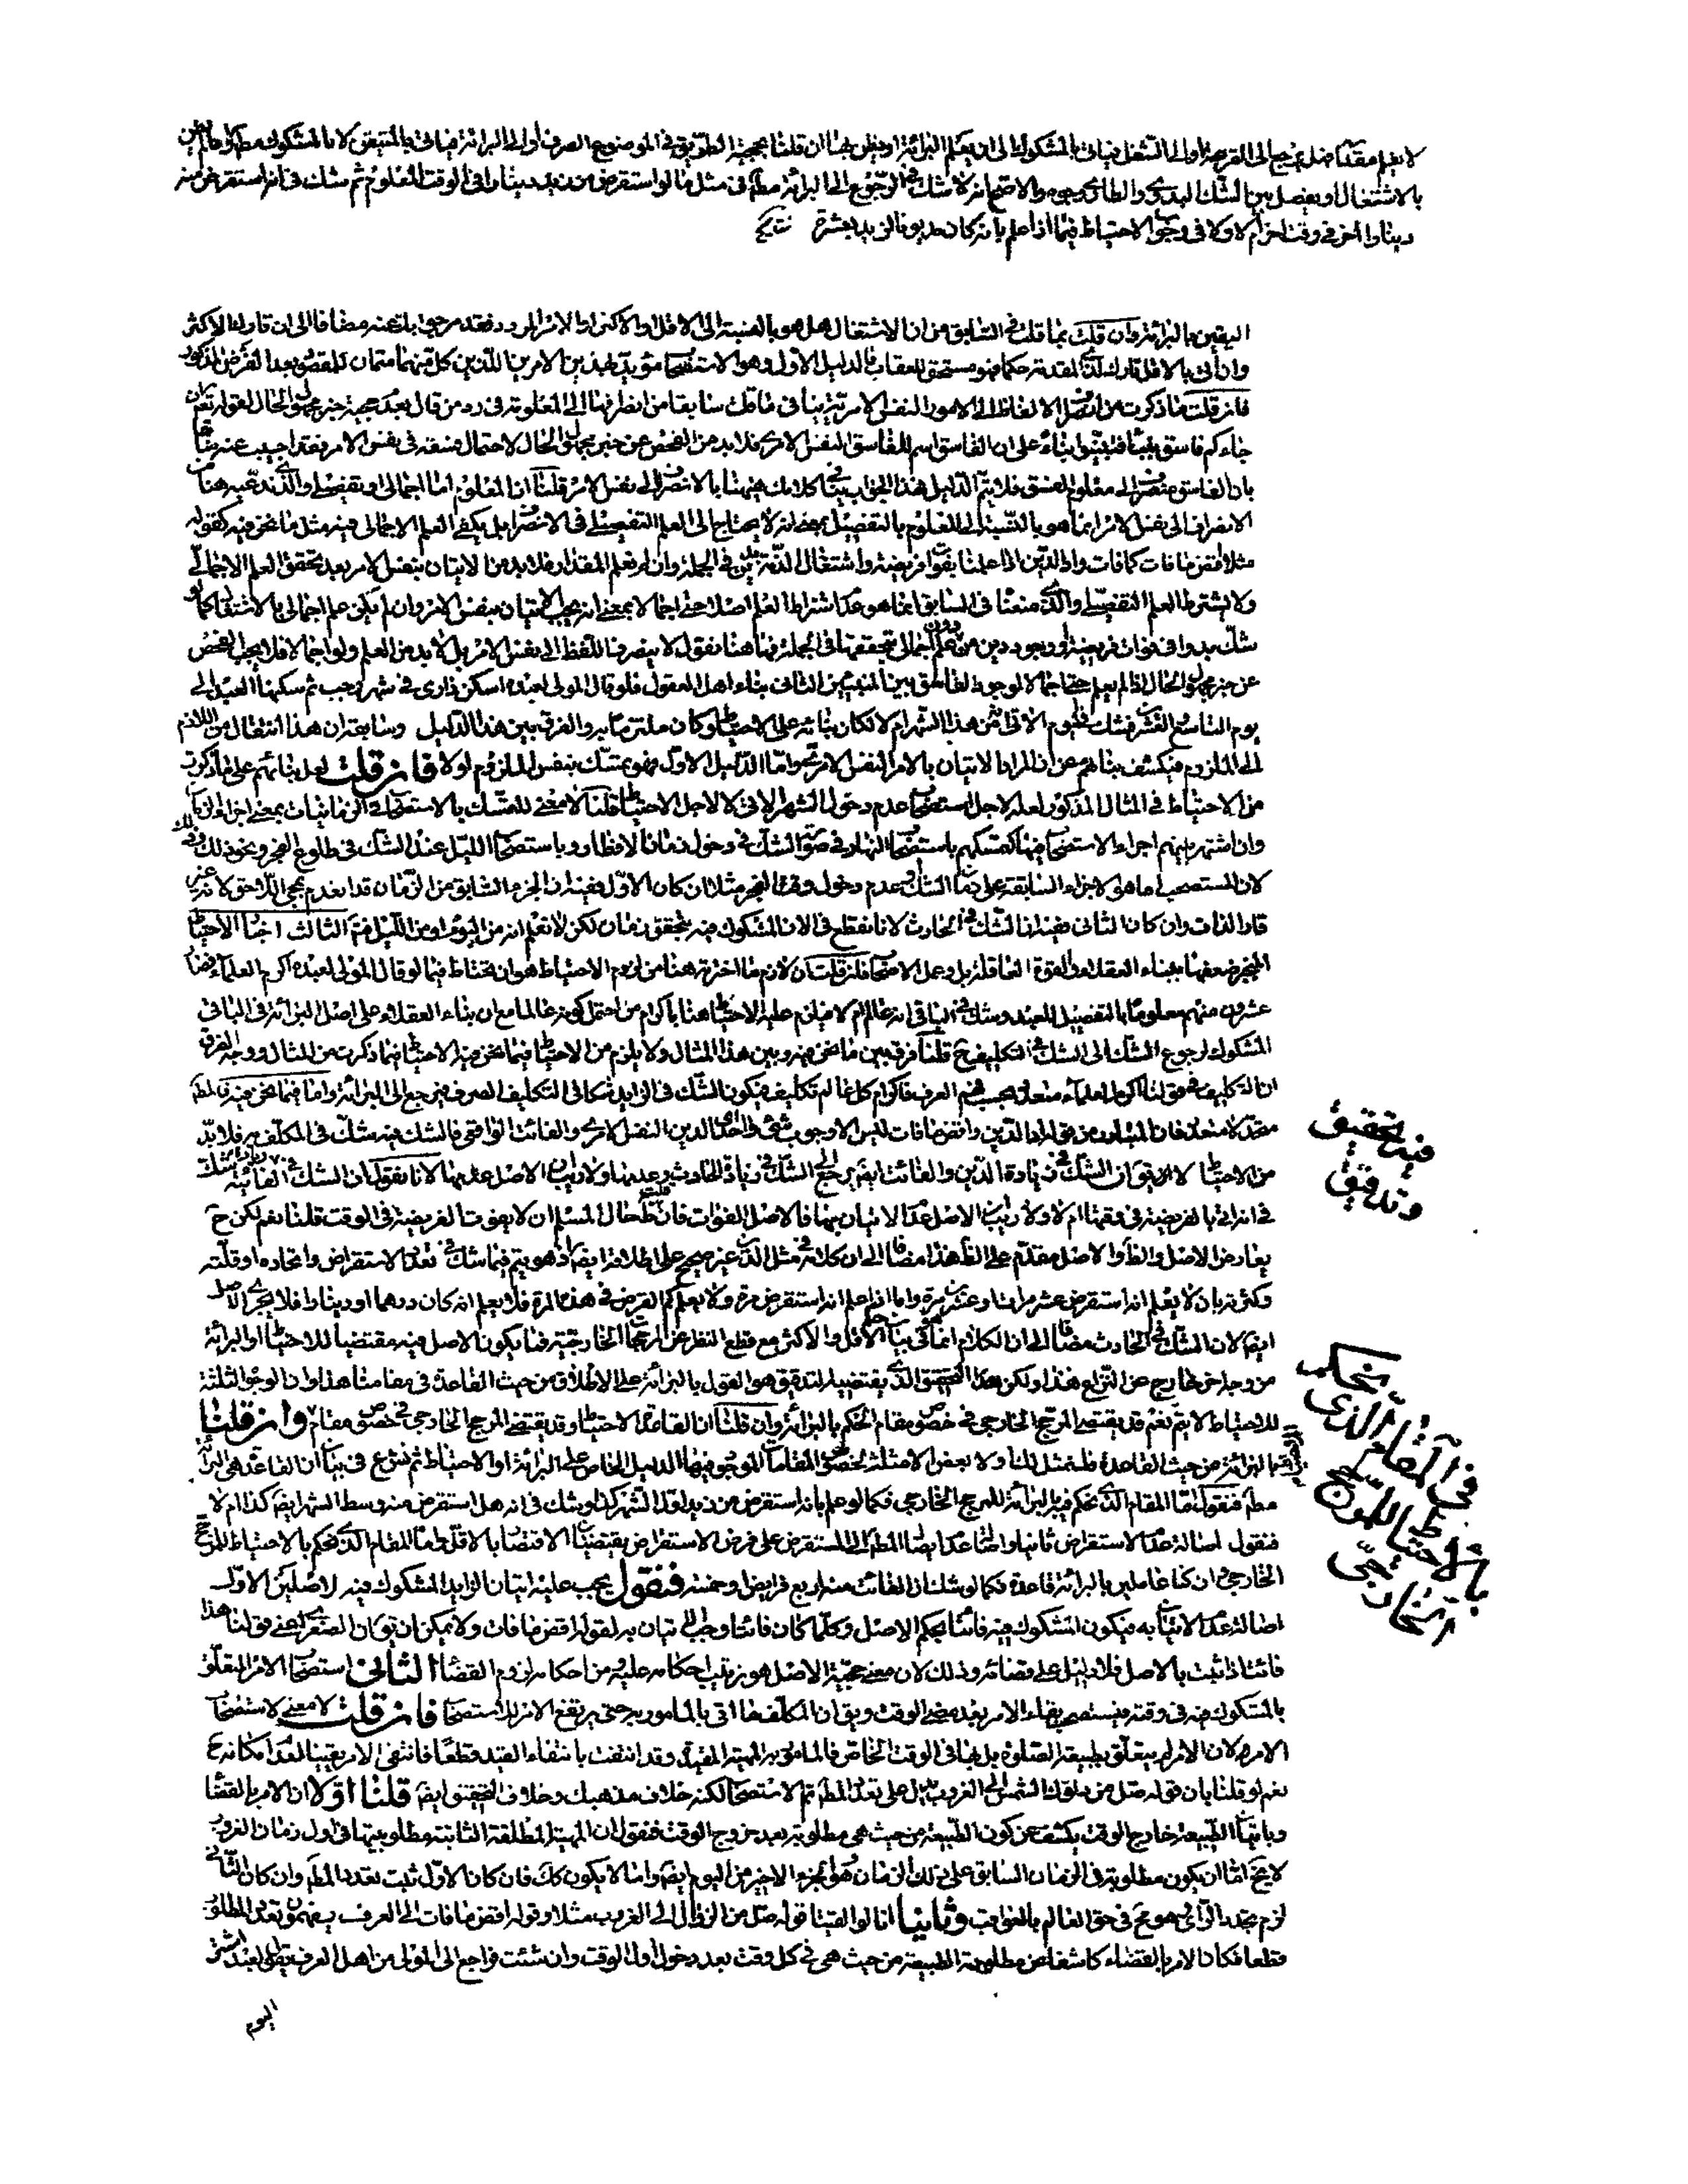 لا يعلم مقدارها فهل يرجع الى القرعة او الى الشغل فياتى بالمشكوك الى ان يعلم البرائة او يظن بها ان قلنا بحجية الظن فى الموضوع الصرف او الى البرائة فياتى بالمتيقن لا بالمشكوك مطلقا
بالاشتغال او يفصل بين الشك البدوى والطارى وجوه والاصح انه لا شك فى الرجوع الى البرائة مطلقا فى مثل ما لو استقرض من زيد دينارا فى الوقت المعلوم ثم شك فى انه استقرض منه
دينارا اخر فى وقت اخر ام لا ولا فى وجوب الاحتياط فيما اذا علم بانه كان مديونا لزيد بعشرة
اليقين بالبرائة وان قلت بما قلت فى السابق من ان الاشتغال هل هو بالنسبة الى الاقل او الاكثر او الامر المردد فقد مر جوابك عنه مضافا الى ان تارك الاكثر
وان اتى بالاقل تارك لذى المقدمة حكما فهو مستحق للعقاب فالدليل الاول وهو الاستصحاب مؤيد بهذين الامرين اللذين كل منهما متمان للمقصود بعد الفرض المذكور
فان قلت ما ذكرت من انصراف الالفاظ الى الامور النفس الامرية ينافى ما قلت سابقا من انصرافها الى المعلومة فى رد من قال بعدم حجية خبر مجهول الحال لقوله تعالى ان
جاءكم فاسق بنبأ فتبينوا بناء على ان الفاسق اسم للفاسق النفس الامرى فلا بد من الفحص عن خبر مجهول الحال لاحتمال فسقه فى نفس الامر فقد اجيب عنه هناك
بان الفاسق منصرف الى معلوم الفسق فلا يتم الدليل فهذا الجواب ينافى كلامك هيهنا بالانصراف الى نفس الامر قلنا ان المعلوم اما اجمالى او تفصيلى والذى ندعيه هنا من
الانصراف الى نفس الامر انما هو بالنسبة الى المعلوم بالتفصيل بمعنى انه لا يحتاج الى العلم التفصيلى فى الانصراف بل يكفى العلم الاجمالى فيه مثل ما نحن فيه كقوله
مثلا اقض ما فات كما فات واد الدين اذا علمنا بفوات فريضة واشتغال الذمة بدين فى الجملة وان لم نعلم المقدار فلا بد من الاتيان بنفس الامر بعد تحقق العلم الاجمالى
ولا يشترط العلم التفصيلى والذى منعنا فى السابق انما هو عدم اشتراط العلم اصلا حتى اجمالا بمعنى انه يجب الاتيان بنفس الامر وان لم يكن علم اجمالى بالاشتغال كما لو
شك بدوا فى فوات فريضة او وجود دين من دون علم اجمالى بتحققها فى الجملة فها هنا نقول لا ينصرف اللفظ الى نفس الامر بل لا بد من العلم ولو اجمالا فلا يجب الفحص
عن خبر مجهول الحال اذا لم يعلم حتى اجمالا لوجود الفاسق بين المخبرين الثانى بناء اهل العقول فلو قال المولى لعبده اسكن دارى فى شهر رجب ثم سكنها العبد الى
يوم التاسع العشر فشك فى اليوم الاتى من هذا الشهر ام لا لكان بنائه على الاحتياط وكان ملتزما به والفرق بين هذا الدليل وسابقه ان هذا انتقال من اللازم
الى الملزوم فيكشف بنائهم عن ان المراد الاتيان بالامر النفس الامرى واما الدليل الاول فهو تمسك بنفس الملزوم لولا فان قلت لعل بنائهم على ما ذكرت
من الاحتياط فى المثال المذكور لعله لاجل استصحاب عدم دخول الشهر الاتى لا لاجل الاحتياط قلنا لا معنى للتمسك بالاستصحاب فى الزمانيات بمعنى اجزاء الزمان
وان اشتهر بينهم اجراء الاستصحاب فيها كتمسكهم باستصحاب النهار فى صورة الشك فى دخول زمان الافطار وباستصحاب الليل عند الشك فى طلوع الفجر ونحو ذلك وذلك
لان المستصحب اما هو الاجزاء السابقة على زمان الشك او عدم دخول وقت الفجر مثلا فان كان الاول ففيه ان الجزء السابق من الزمان قد انعدم بمجئ اللاحق لانه غير
قار الذات وان كان الثانى ففيه ان الشك فى الحادث لانا نقطع فى الان المشكوك فيه بتحقق زمان لكن لا نعلم انه من اليوم او من الليل ثم الثالث اخبار الاحتياط
المنجبر ضعفها ببناء العقلاء والقوة العاقلة بل وعمل الاصحاب فان قلت ان لازم ما اخترته هنا من لزوم الاحتياط هو ان تحتاط فيما لو قال المولى لعبده اكرم العلماء فصار
عشرون منهم معلوما بالتفصيل للعبد وشك فى الباقى انه عالم ام لا فيلزم عليه الاحتياط هنا باكرام من احتمل كونه عالما مع ان بناء العقلاء على اصل البرائة فى الباقى
المشكوك لرجوع الشك الى الشك فى التكليف ح قلنا فرق بين ما نحن فيه وبين هذا المثال ولا يلزم من الاحتياط فيما نحن فيه الاحتياط فيما ذكرت من المثال ووجه الفرق
ان التكليف فى قولنا اكرم العلماء متعدد بحسب فهم العرف فاكرام كل عالم تكليف فيكون الشك فى الزايد شكا فى التكليف الصرف فيرجع الى البرائة واما فيما نحن فيه فالمط
متحد لا متعدد فان المتبادر من قوله اد الدين واقض ما فات ليس الا وجوب شئ واحد اى الدين النفس الامرى والفائت الواقعى فالشك فيه شك فى المكلف به فلا بد
من الاحتياط لا يق ان الشك فى زيادة الدين والفائت ايض يرجع الى الشك فى زيادة الحادث وعدمها ولا ريب ان الاصل عدمها لانا نقول ان الشك فى الفائتة شك
فى انه اتى بالفريضة فى وقتها ام لا ولا ريب ان الاصل عدم الاتيان بها فالاصل الفوات فان قلت ظ حال المسلم ان لا يفوت الفريضة فى الوقت قلنا نعم لكن ح
يعارض الاصل والظ والاصل مقدم على الظ هذا مضافا الى ان كلامه فى مثل الدين غير صحيح على اطلاقه ايض اذ هو يتم فيما شك فى تعدد الاستقراض واتحاده او قلته
وكثرته بان لا يعلم انه استقرض عشر مرات او عشرين مرة واما اذا علم انه استقرض مرة ولا يعلم كم القرض فى هذه المرة فلا يعلم انه كان درهما او دينارا فلا يجرى الاصل
ايض لان الشك فى الحادث مضافا الى ان الكلام انما هو فى بيان حكم الاقل والاكثر مع قطع النظر عن المرجحات الخارجية فما يكون الاصل فيه مقتضيا للاحتياط او البرائة
من وجه اخر خارج عن النزاع هذا ولكن هذا التحقيق الذى يقتضيه التدقيق هو القول بالبرائة على الاطلاق من حيث القاعدة فى مقامنا هذا وان الوجوه الثلثة
للاحتياط لا يتم نعم قد يقتضى المرجح الخارجى فى خصوص مقام الحكم بالبرائة وان قلنا ان القاعدة الاحتياط وقد يقتضى المرجح الخارجى فى خصوص مقام وان قلنا
بالبرائة من حيث القاعدة فلنمثل لك اولا بعض الامثلة لخصوص المقامات الموجود فيها الدليل الخاص على البرائة او الاحتياط ثم نشرع فى بيان ان القاعدة هى البرائة
مط فنقول اما المقام الذى نحكم فيه بالبرائة للمرجح الخارجى فكما لو علم بانه استقرض من زيد اول هذا الشهر كذا وشك فى انه هل استقرض منه وسط الشهر ايض كذا ام لا
فنقول اصالة عدم الاستقراض ثانيا واصالة عدم ايصال المط الى المستقرض على فرض الاستقراض يقتضيان الاقتصار بالاقل واما المقام الذى نحكم بالاحتياط للمرجح
الخارجى وان كنا عاملين بالبرائة قاعدة فكما لو شك ان الفائت منه اربع فرايض او خمسة فنقول يجب عليه اتيان الزايد المشكوك فيه لاصلين الاول
اصالة عدم الاتيان به فيكون المشكوك فيه فائتا بحكم الاصل وكلما كان فائتا وجب الاتيان به لقوله اقض ما فات ولا يمكن ان يق ان الصغرى اعنى قولنا هذا
فائتا اذا ثبت بالاصل فلا دليل على قضائه وذلك لان معنى حجية الاصل هو ترتب احكامه عليه ومن احكامه لزوم القضاء الثانى استصحاب الامر المتعلق
بالمشكوك فيه فى وقته فيستصحب بقاء الامر بعد مضى الوقت ويق ان المكلف ما اتى بالمامور به حتى يرتفع الامر للاستصحاب فان قلت لا معنى لاستصحاب
الامر لان الامر لم يتعلق بطبيعة الصلوة بل بها فى الوقت الخاص فالمامور به المهية المقيدة وقد انتفت بانتفاء القيد قطعا فانتفى الامر يقينا لعدم امكانه ح
نعم لو قلنا بان قوله صل من دلوك الشمس الى الغروب يدل على تعدد المط تم الاستصحاب لكنه خلاف مذهبك وخلاف التحقيق ايض قلنا اولا ان الامر بالقضاء
وباتيان الطبيعة خارج الوقت يكشف عن كون الطبيعة من حيث هى مطلوبة بعد خروج الوقت فنقول ان المهية المطلقة الثابتة مطلوبيتها فى اول زمان الغروب
لا يخ اما ان يكون مطلوبة فى الزمان السابق على ذلك الزمان وهو الجزء الاخير من اليوم ايض واما لا يكون كك فان كان الاول ثبت تعدد المط وان كان الثانى
لزم تجدد الراى وهو مح فى حق العالم بالعواقب وثانيا انا لو القينا قوله صل من الزوال الى الغروب مثلا وقوله اقض ما فات الى العرف يفهمون تعدد المطلوب
قطعا فكان الامر بالقضاء كاشفا عن مطلوبية الطبيعة من حيث هى فى كل وقت بعد دخول اول الوقت وان شئت فراجع الى المولى من اهل العرف يقول لعبده اشتر
اليوم
فيه تحقيق
وتدقيق
نحكم
فى المقام الذى
بالاحتياط للمرجح
الخارجى